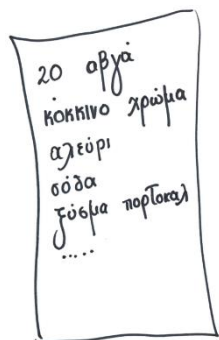 20 αβγά
κόκκινο χρώμα
αλεύρι
σόδα
ξύσμα πορτοκαλ
.....